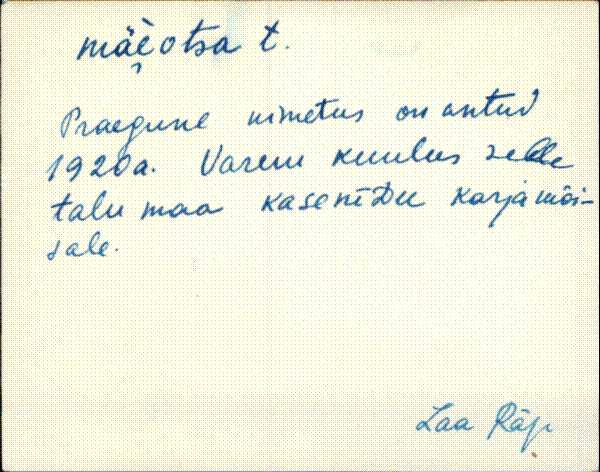 mäe̬otsa t.
Praegune nimetus on antud
1920a. Varem kuulus selle
talu maa kaseniDu karjamõi-
sale.
Laa Räp.